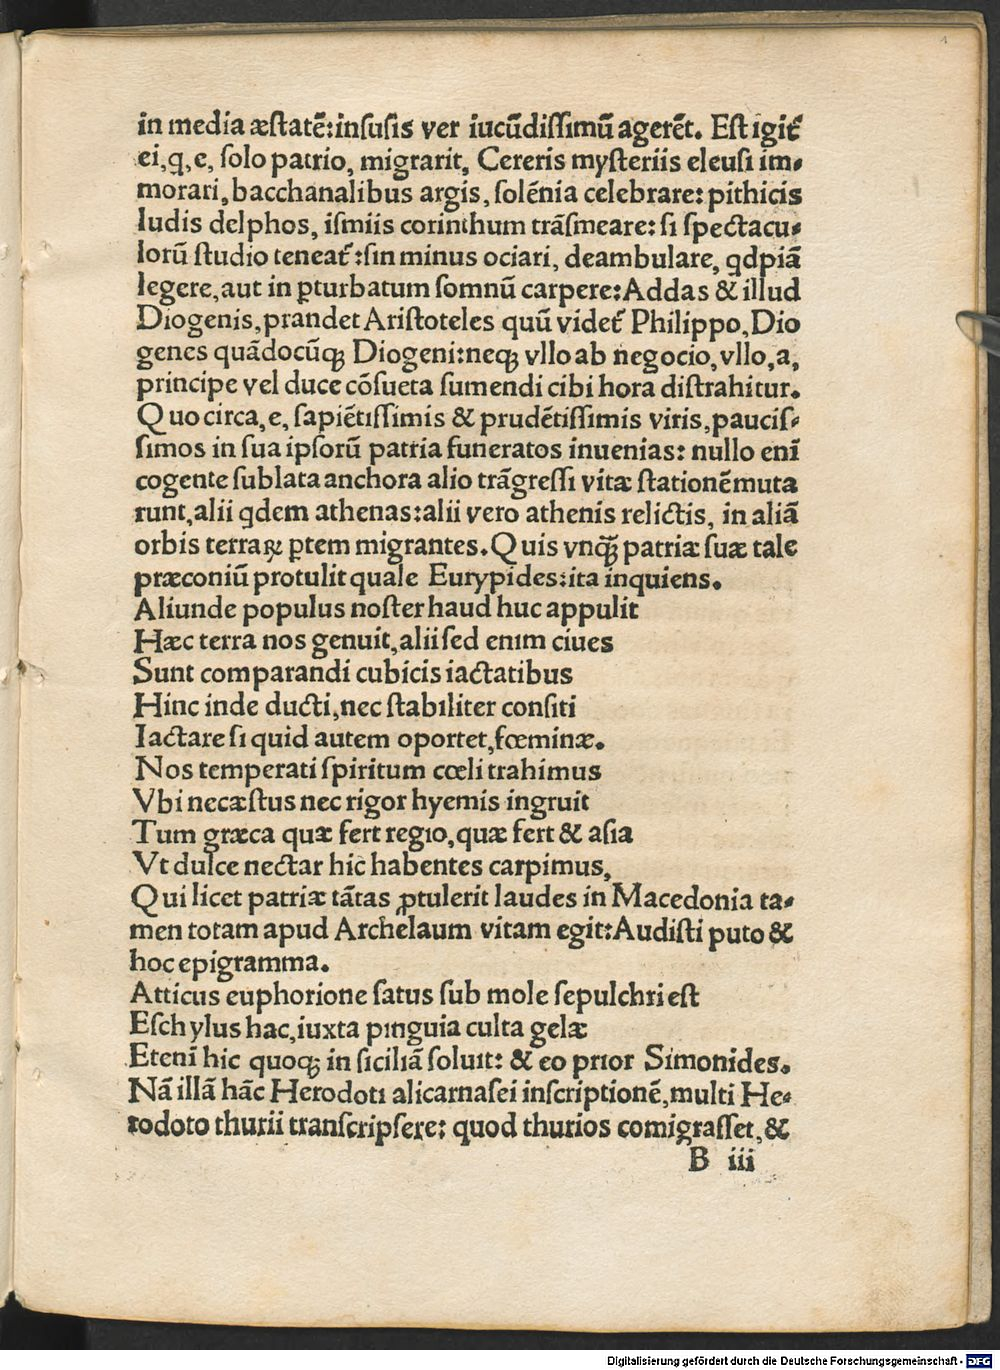 in media æstatē:insusis ver iucūdissimū agerēt. Est igit᷑
ei,q,e, solo patrio, migrarit, Cereris mysteriis eleusi im-
morari, bacchanalibus argis, solēnia celebrare: pithicis
ludis delphos, ismiis corinthum trāsmeare: si spectacu-
lorū studio teneat᷑:sin minus ociari, deambulare, qdpiā
legere, aut in ꝑturbatum somnū carpere: Addas & illud
Diogenis, prandet Aristoteles quū videt᷑ Philippo, Dio
genes quādocūqꝫ Diogeni:neqꝫ vllo ab negocio, vllo,a,
principe vel duce cōsueta sumendi cibi hora distrahitur.
Quo circa,e, sapiētissimis & prudētissimis viris, paucis-
simos in sua ipsorū patria funeratos inuenias: nullo enī
cogente sublata anchora alio trāgressi vitæ stationē muta
runt, alii qdem athenas: alii vero athenis relictis, in aliā
orbis terraꝝ ꝑtem migrantes. Quis vnqꝫ̄ patriæ suæ tale
præconiū protulit quale Eurypides: ita inquiens.
Aliunde populus noster haud huc appulit
Hæc terra nos genuit, alii sed enim ciues
Sunt comparandi cubicis iactatibus
Hinc inde ducti, nec stabiliter consiti
Iactare si quid autem oportet, fœminæ.
Nos temperati spiritum cœli trahimus
Vbi nec æstus nec rigor hyemis ingruit
Tum græca quæ fert regio, quæ fert & asia
Vt dulce nectar hic habentes carpimus,
Qui licet patriæ tātas ꝓtulerit laudes in Macedonia ta-
men totam apud Archelaum vitam egit: Audisti puto &
hoc epigramma.
Atticus euphorione satus sub mole sepulchri est
Eschylus hac, iuxta pinguia culta gelæ
Etenī hic quoqꝫ in siciliā soluit: & eo prior Simonides.
Nā illā hāc Herodoti alicarnasei inscriptionē, multi He-
rodoto thurii transcripsere: quod thurios comigrasset, &
B iii
Digitalisierung gefördert durch die Deutsche Forschungsgemeinschaft - DFG